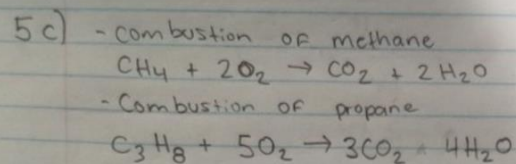 5c) - Combustion of methane
CH4 + 2O2 → CO2 + 2H2O
- Combustion of propane
C3H8 + 5O2 → 3CO2 4H2O